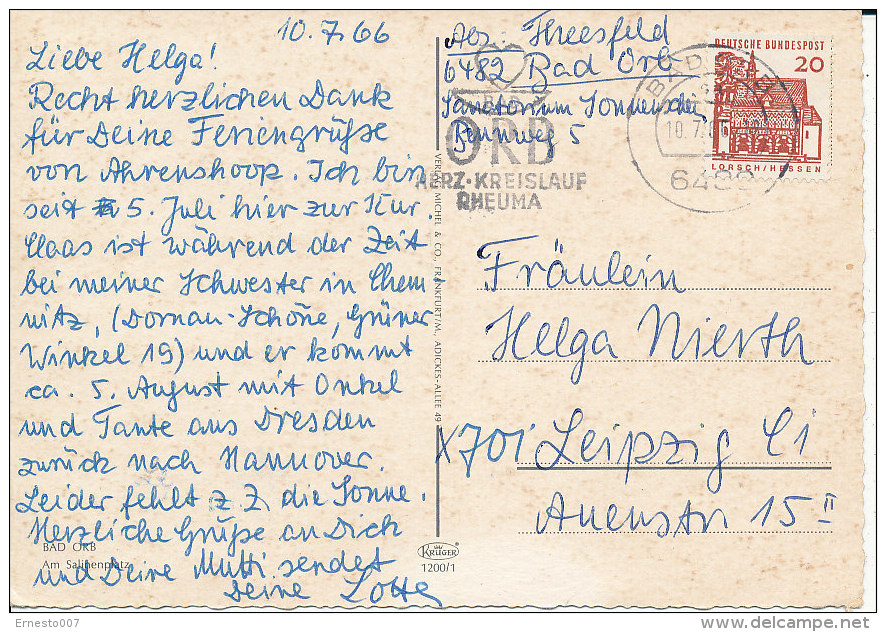 10.7.66
Liebe Helga!
Recht herzlichen Dank
für Deine Feriengrüße
von Ahrenshoop. Ich bin
seit 5. Juli hier zur Kur.
Claas ist während der Zeit
bei meiner Schwester in Chem
nitz, (Dornau-Schöne, Grüner
Winkel 19) und er kommt
ca. 5. August mit Onkel
und Tante aus Dresden
zurück nach Hannover.
Leider fehlt z. Z. die Sonne.
Herzliche Grüße an Dich
und Deine Mutti sendet
Deine Lotte
BAD ORB
Am Salinenplatz
VERLAG MICHEL & CO., FRANKFURT/M., ADICKES-ALLEE 49
KRÜGER
1200/1
Abs. Threesfeld
6482 Bad Orb
Sanatorium
5
ORB
HERZ·KREISLAUF
RHEUMA
BAD ORB
10.7.66
6482
DEUTSCHE BUNDESPOST
20
LORSCH/HESSEN
Fräulein
Helga Nierth
X701 Leipzig C1
Auenstr 15 II
Ernesto007
delcampe.net